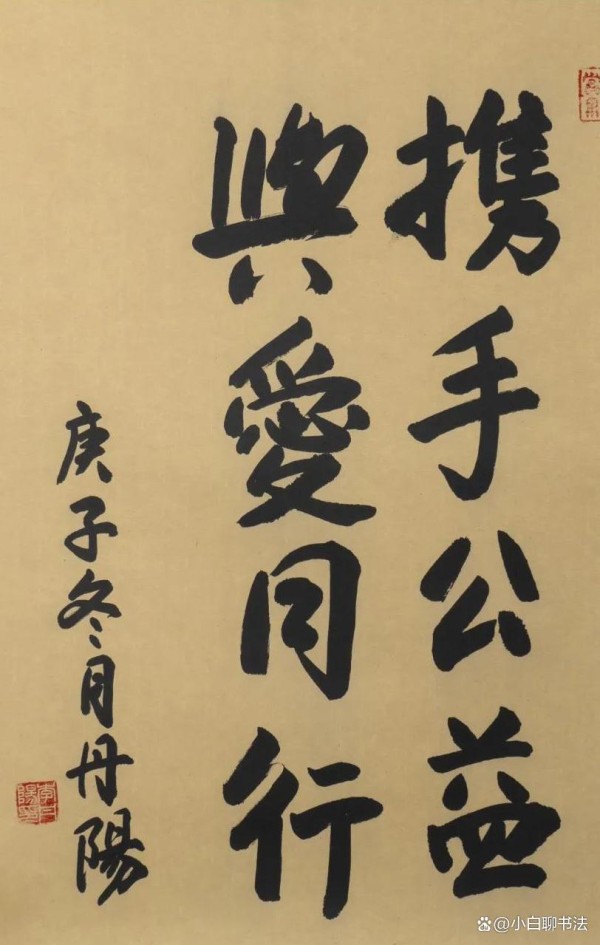 携手公益
與愛同行
庚子冬月丹陽
@小白聊书法